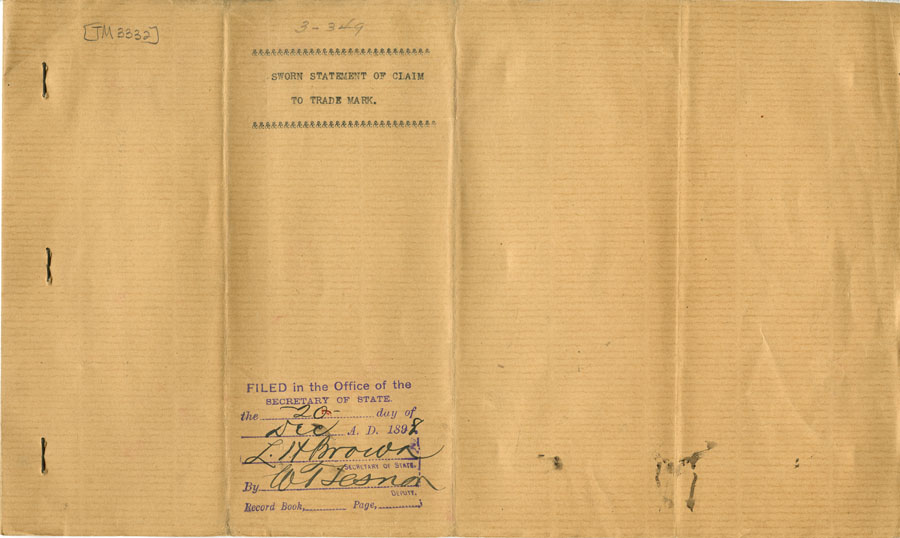 [TM 3332]
3-349
SWORN STATEMENT OF CLAIM
TO TRADE MARK.
FILED in the Office of the
SECRETARY OF STATE.
the 20 day of
Dec A. D. 1898
L. H. Brown
SECRETARY OF STATE.
By
DEPUTY.
Record Book, Page,